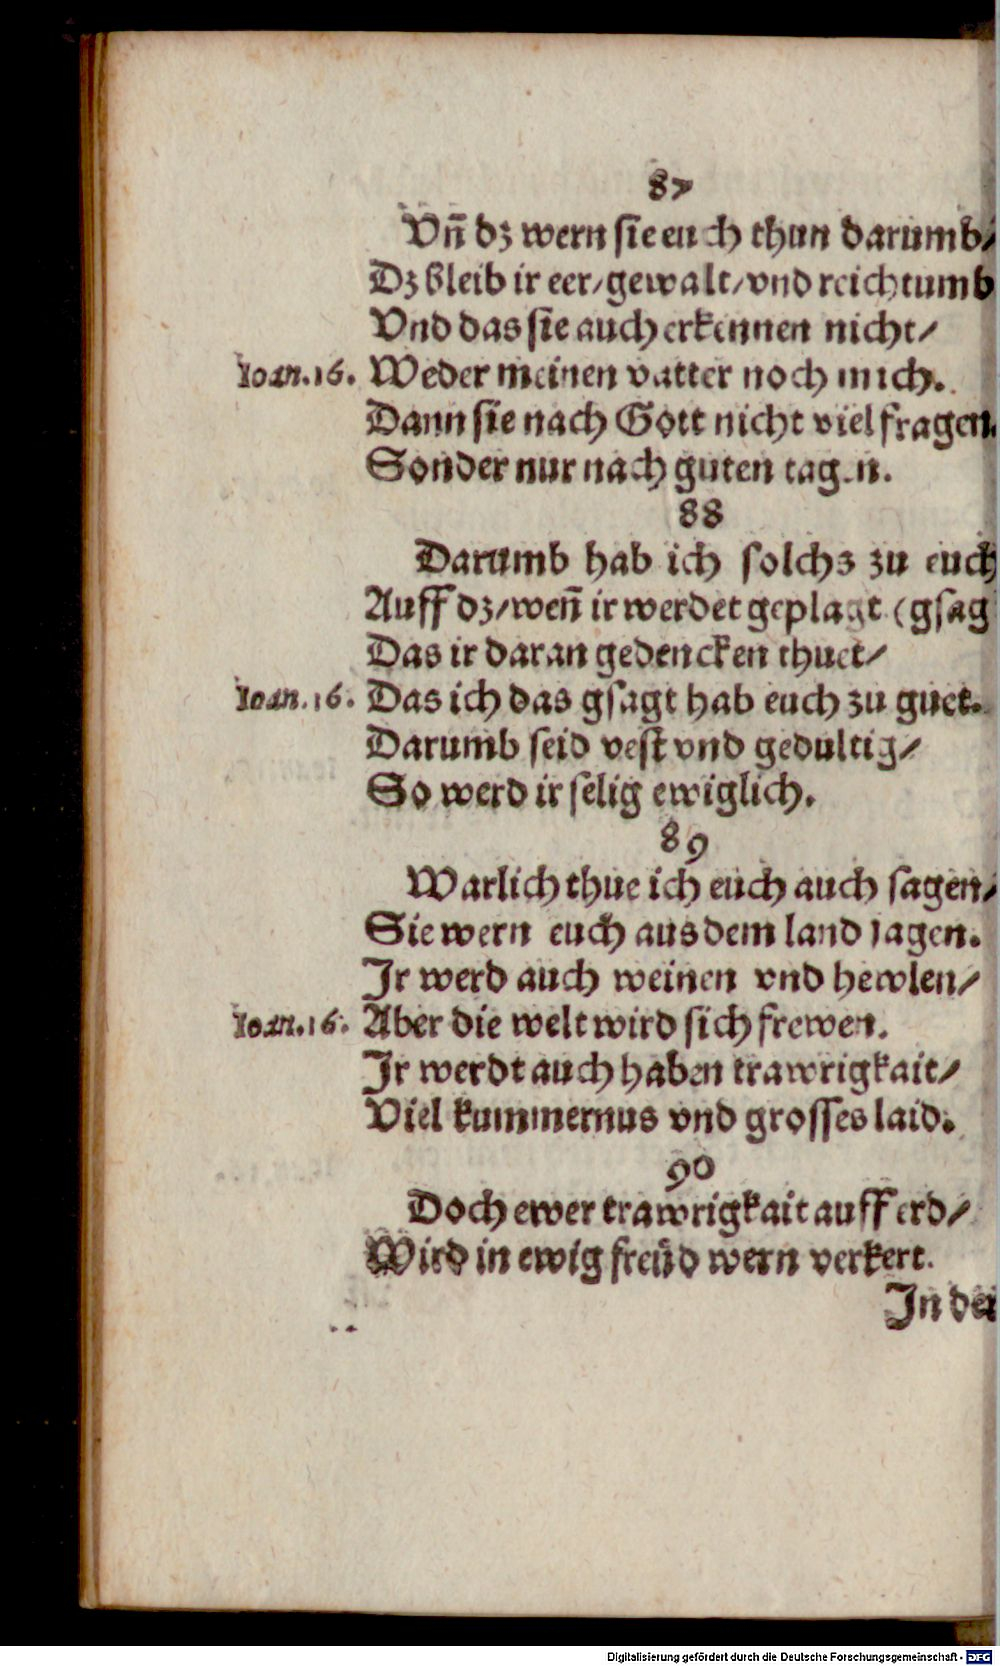 87
Vñ dz wern sie euch thun darumb/
Dz bleib ir eer/gewalt/vnd reichtumb
Vnd das sie auch erkennen nicht/
Ioan.16. Weder meinen vatter noch mich.
Dann sie nach Gott nicht viel fragen.
Sonder nur nach guten tagen.
88
Darumb hab ich solchs zu euch
Auff dz/weñ ir werdet geplagt (gsag
Das ir daran gedencken thuet/
Ioan.16. Das ich das gsagt hab euch zu guet.
Darumb seid vest vnd gedultig/
So werd ir selig ewiglich.
89
Warlich thue ich euch auch sagen/
Sie wern euch aus dem land jagen.
Ir werd auch weinen vnd hewlen/
Ioan.16. Aber die welt wird sich frewen.
Ir werdt auch haben trawrigkait/
Viel kummernus vnd grosses laid.
90
Doch ewer trawrigkait auff erd/
Wird in ewig freüd wern verkert.
In der
Digitalisierung gefördert durch die Deutsche Forschungsgemeinschaft - DFG